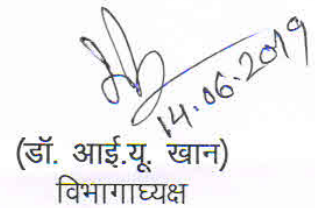 14.06.2019
(डॉ. आई.यू. खान)
विभागाध्यक्ष